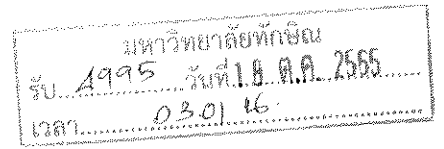 มหาวิทยาลัยทักษิณ
รับ 4995 วันที่ 18 ต.ค. 2565
เวลา 0301 16